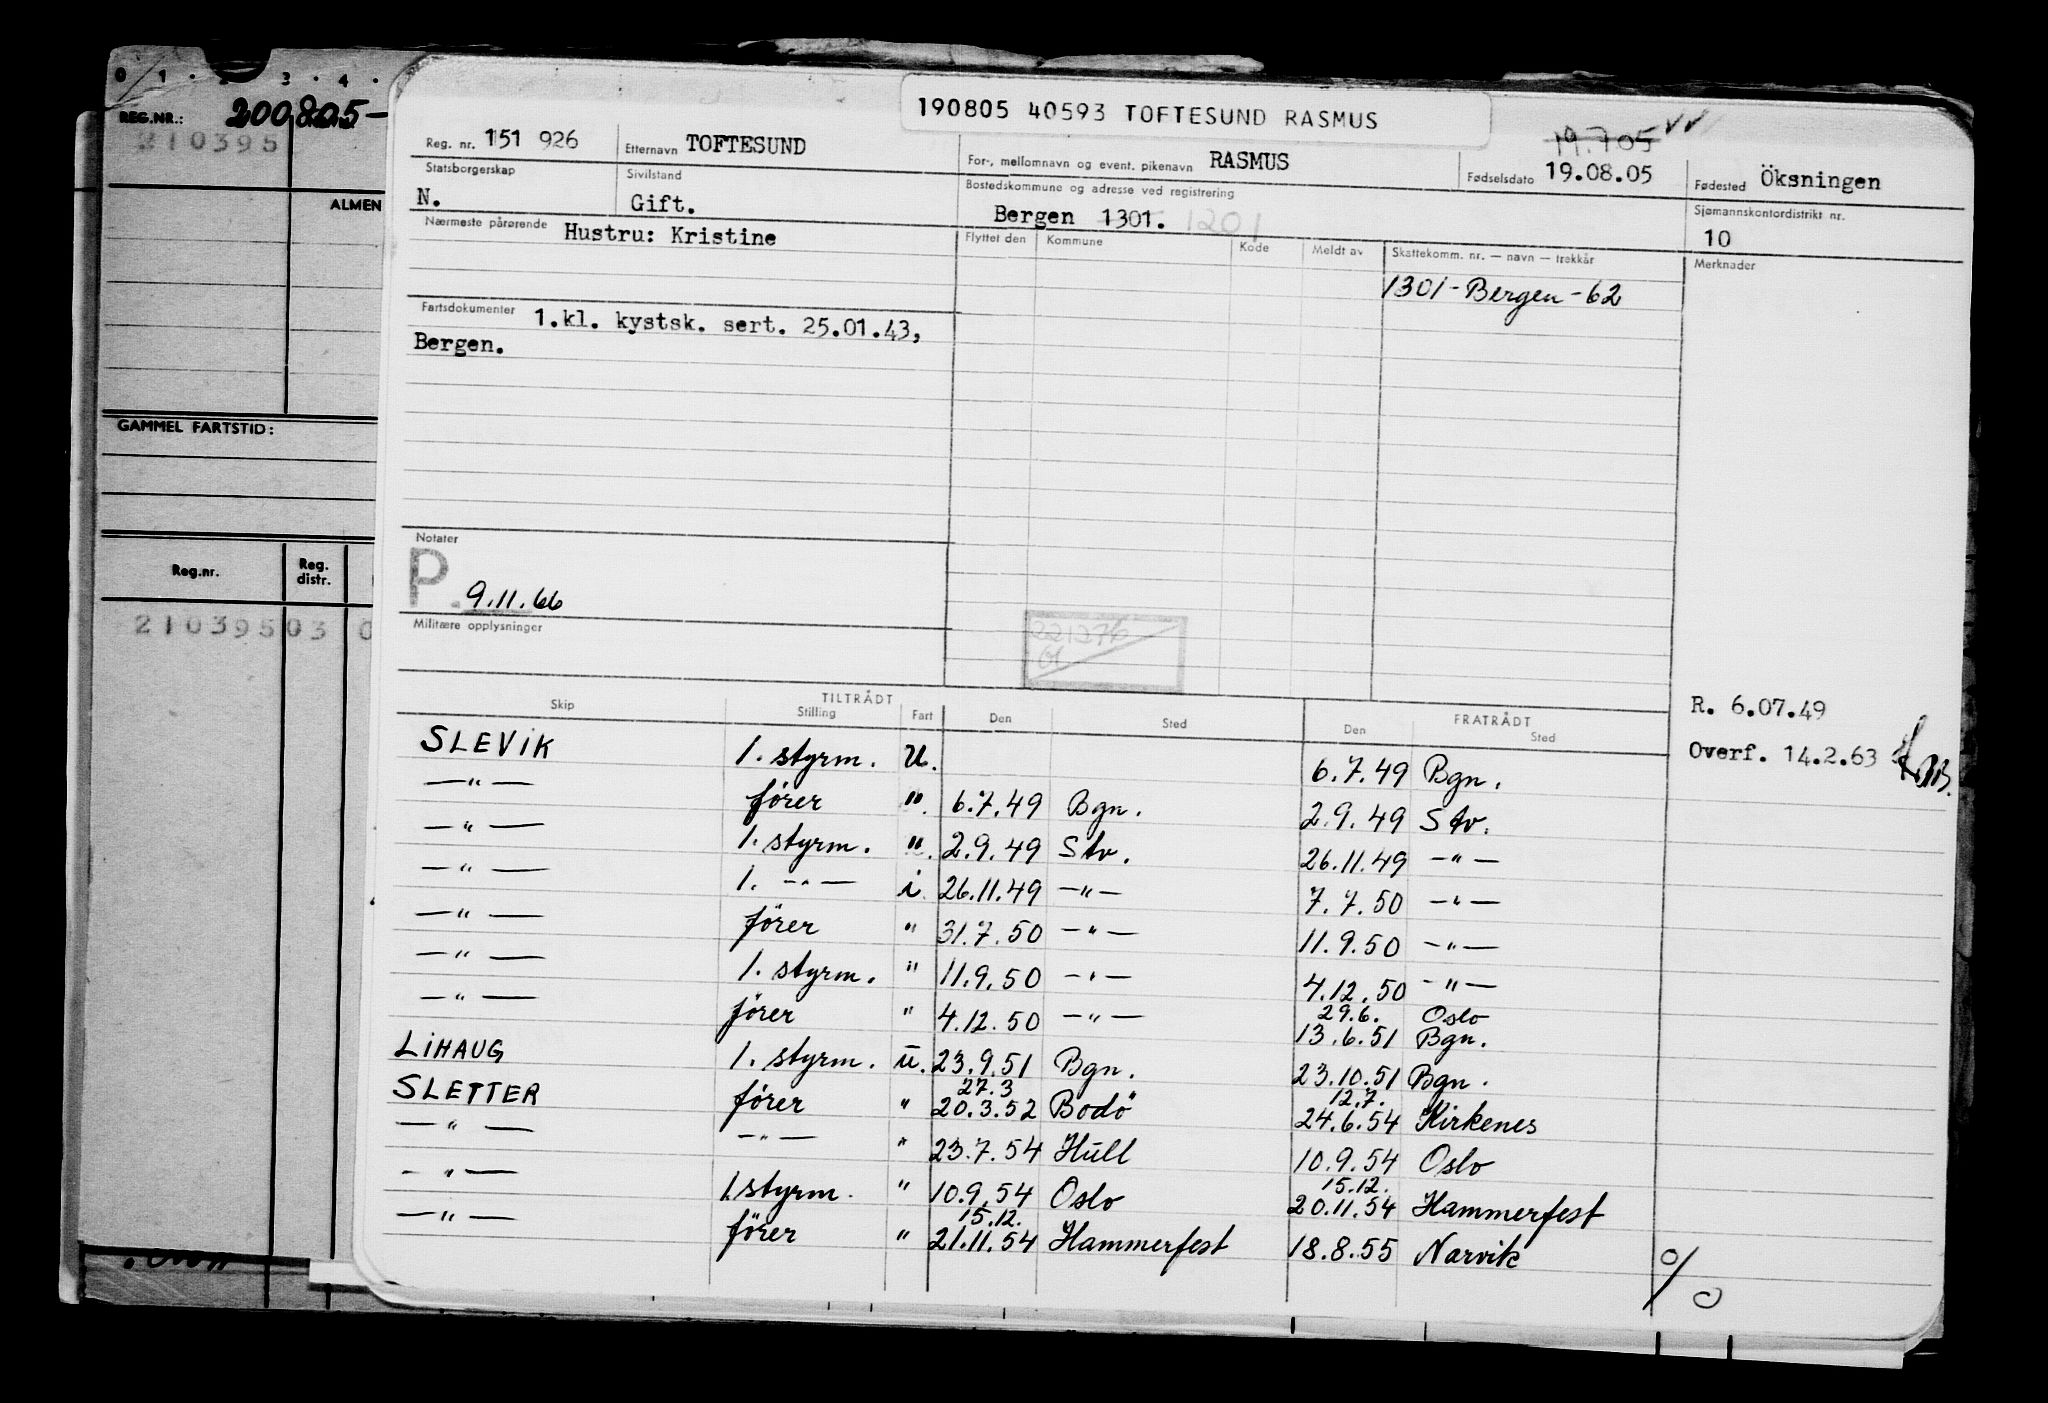 0 1 · 2 · 3 · 4 ·
REG.NR.: 200805-
210395
ALMEN
GAMMEL FARTSTID:
Reg.nr. Reg. distr.
210395 03 0
190805 40593 TOFTESUND RASMUS
19.7.05
Reg. nr. 151 926 Etternavn TOFTESUND For-, mellomnavn og event. pikenavn RASMUS Fødselsdato 19.08.05 Fødested Öksningen
Statsborgerskap N. Sivilstand Gift. Bostedskommune og adresse ved registrering Bergen 1301. 1201 Sjømannskontordistrikt nr. 10
Nærmeste pårørende Hustru: Kristine Flyttet den Kommune Kode Meldt av Skattekomm. nr. — navn — trekkår Merknader
1301-Bergen-62
Fartsdokumenter 1.kl. kystsk. sert. 25.01.43,
Bergen.
Notater
P. 9.11.66
Militære opplysninger
221276
01
R. 6.07.49
Overf. 14.2.63
TILTRÅDT FRATRÅDT
Skip Stilling Fart Den Sted Den Sted
SLEVIK 1. styrm. u. 6.7.49 Bgn.
—"— fører ". 6.7.49 Bgn. 2.9.49 Stv.
—"— 1. styrm. ". 2.9.49 Stv. 26.11.49 —"—
—"— 1. —"— i. 26.11.49 —"— 7.7.50 —"—
—"— fører " 31.7.50 —"— 11.9.50 —"—
—"— 1. styrm. " 11.9.50 —"— 4.12.50 —"—
29.6. Oslo
—"— fører " 4.12.50 —"— 13.6.51 Bgn.
LIHAUG 1. styrm. u. 23.9.51 Bgn. 23.10.51 Bgn.
27.3 12.7.
SLETTER fører " 20.3.52 Bodö 24.6.54 Kirkenes
—"— —"— " 23.7.54 Hull 10.9.54 Oslo
15.12.
—"— 1.styrm. " 10.9.54 Oslo 20.11.54 Hammerfest
15.12.
—"— fører " 21.11.54 Hammerfest 18.8.55 Narvik
%